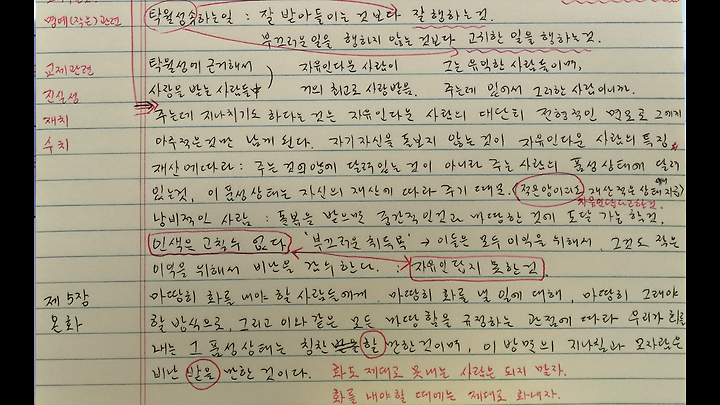 명예(작은) 관련
탁월성
하는일 : 잘 받아들이는 것보다 잘 행하는것.
부끄러운일을 행하지 않는 것보다 고귀한 일을 행하는것.
교제관련 탁월성에 근거해서 자유인다운 사람이 그는 유익한 사람들이며,
진실성 사랑을 받는 사람들中 거의 최고로 사랑받음. 주는데 있어서 그러한 사람이니까.
재치 주는데 지나치기도 하다는것은 자유인다운 사람의 대단히 전형적인 면모로 그에게
수치 아주적은것만 남게 된다. 자기자신을 돌보지 않는것이 자유인다운 사람의 특징.
재산에따라 : 주는것의양에 달려있는것이 아니라 주는 사람의 품성상태에 달려
있는것, 이 품성상태는 자신의 재산에 따라 주기 때문. (적은양이라도 재산적은 상태
자유인답다고한것.
낭비적인 사람 : 돌봄을 받으면 중간적인것과 마땅한 것에 도달 가능 할것.
인색은 고칠수 없다. '부끄러운 취득욕' → 이들은 모두 이익을 위해서. 그것도 작은
이익을 위해서 비난을 감수한다. : 자유인답지 못한것.
제 5장 마땅히 화를 내야 할 사람들에게, 마땅히 화를 낼 일에 대해, 마땅히 그래야
온화 할 방식으로, 그리고 이와 같은 모든 마땅함을 규정하는 관점에 따라 우리가 화를
내는 그 품성상태는 칭찬 할 만한것이며, 이 방면의 지나침과 모자람은
비난 받을 만한 것이다. 화도 제대로 못내는 사람은 되지 말자.
화를 내야할 때에는 제대로 화내자.